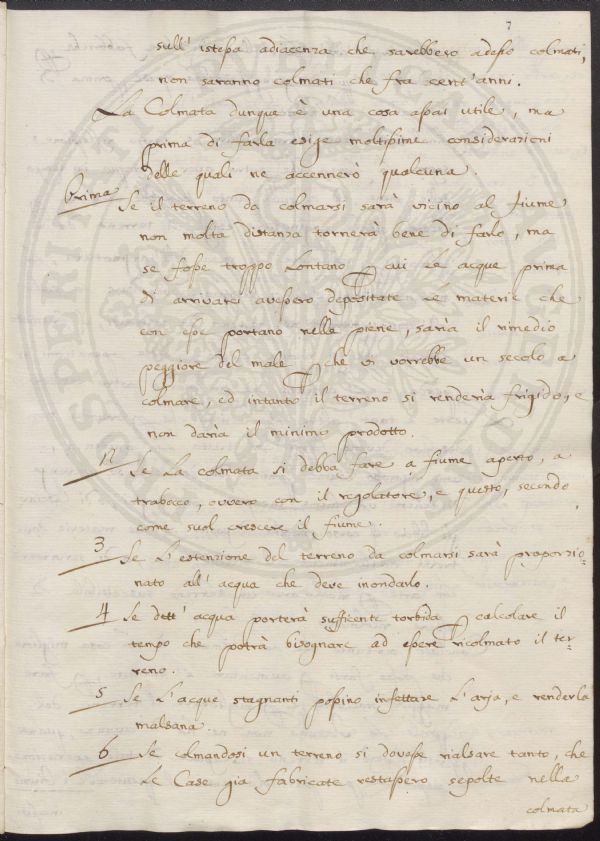 7
sull' istessa adiacenza che sarebbero adesso colmati,
non saranno colmati che fra cent' anni.
La Colmata dunque è una cosa assai utile, ma
prima di farla esige moltissime considerazioni
delle quali ne accennerò qualcuna.
Prima Se il terreno da colmarsi sarà vicino al fiume
non molta distanza tornerà bene di farlo, ma
se fosse troppo lontano p cui le acque prima
di arrivarci avessero depositate le materie che
con esse portano nelle piene, saria il rimedio
peggiore del male p che vi vorrebbe un secolo a
colmare, ed intanto il terreno si renderia frigido, e
non daria il minimo prodotto.
Se la colmata si debba fare a fiume aperto, a
trabocco, ovvero con il regolatore, e questo, secondo
come suol crescere il fiume.
3 Se l' estenzione del terreno da colmarsi sarà proporzio-
nato all' acqua che deve inondarlo.
4 Se dett' acqua porterà sufficente torbida p calcolare il
tempo che potrà bisognare ad essere ricolmato il ter-
reno.
5 Se l' acque stagnanti possino infettare l' arja, e renderla
malsana.
6 Se colmandosi un terreno si dovesse rialsare tanto, che
le Case gia fabricate restassero sepolte nella
colmata